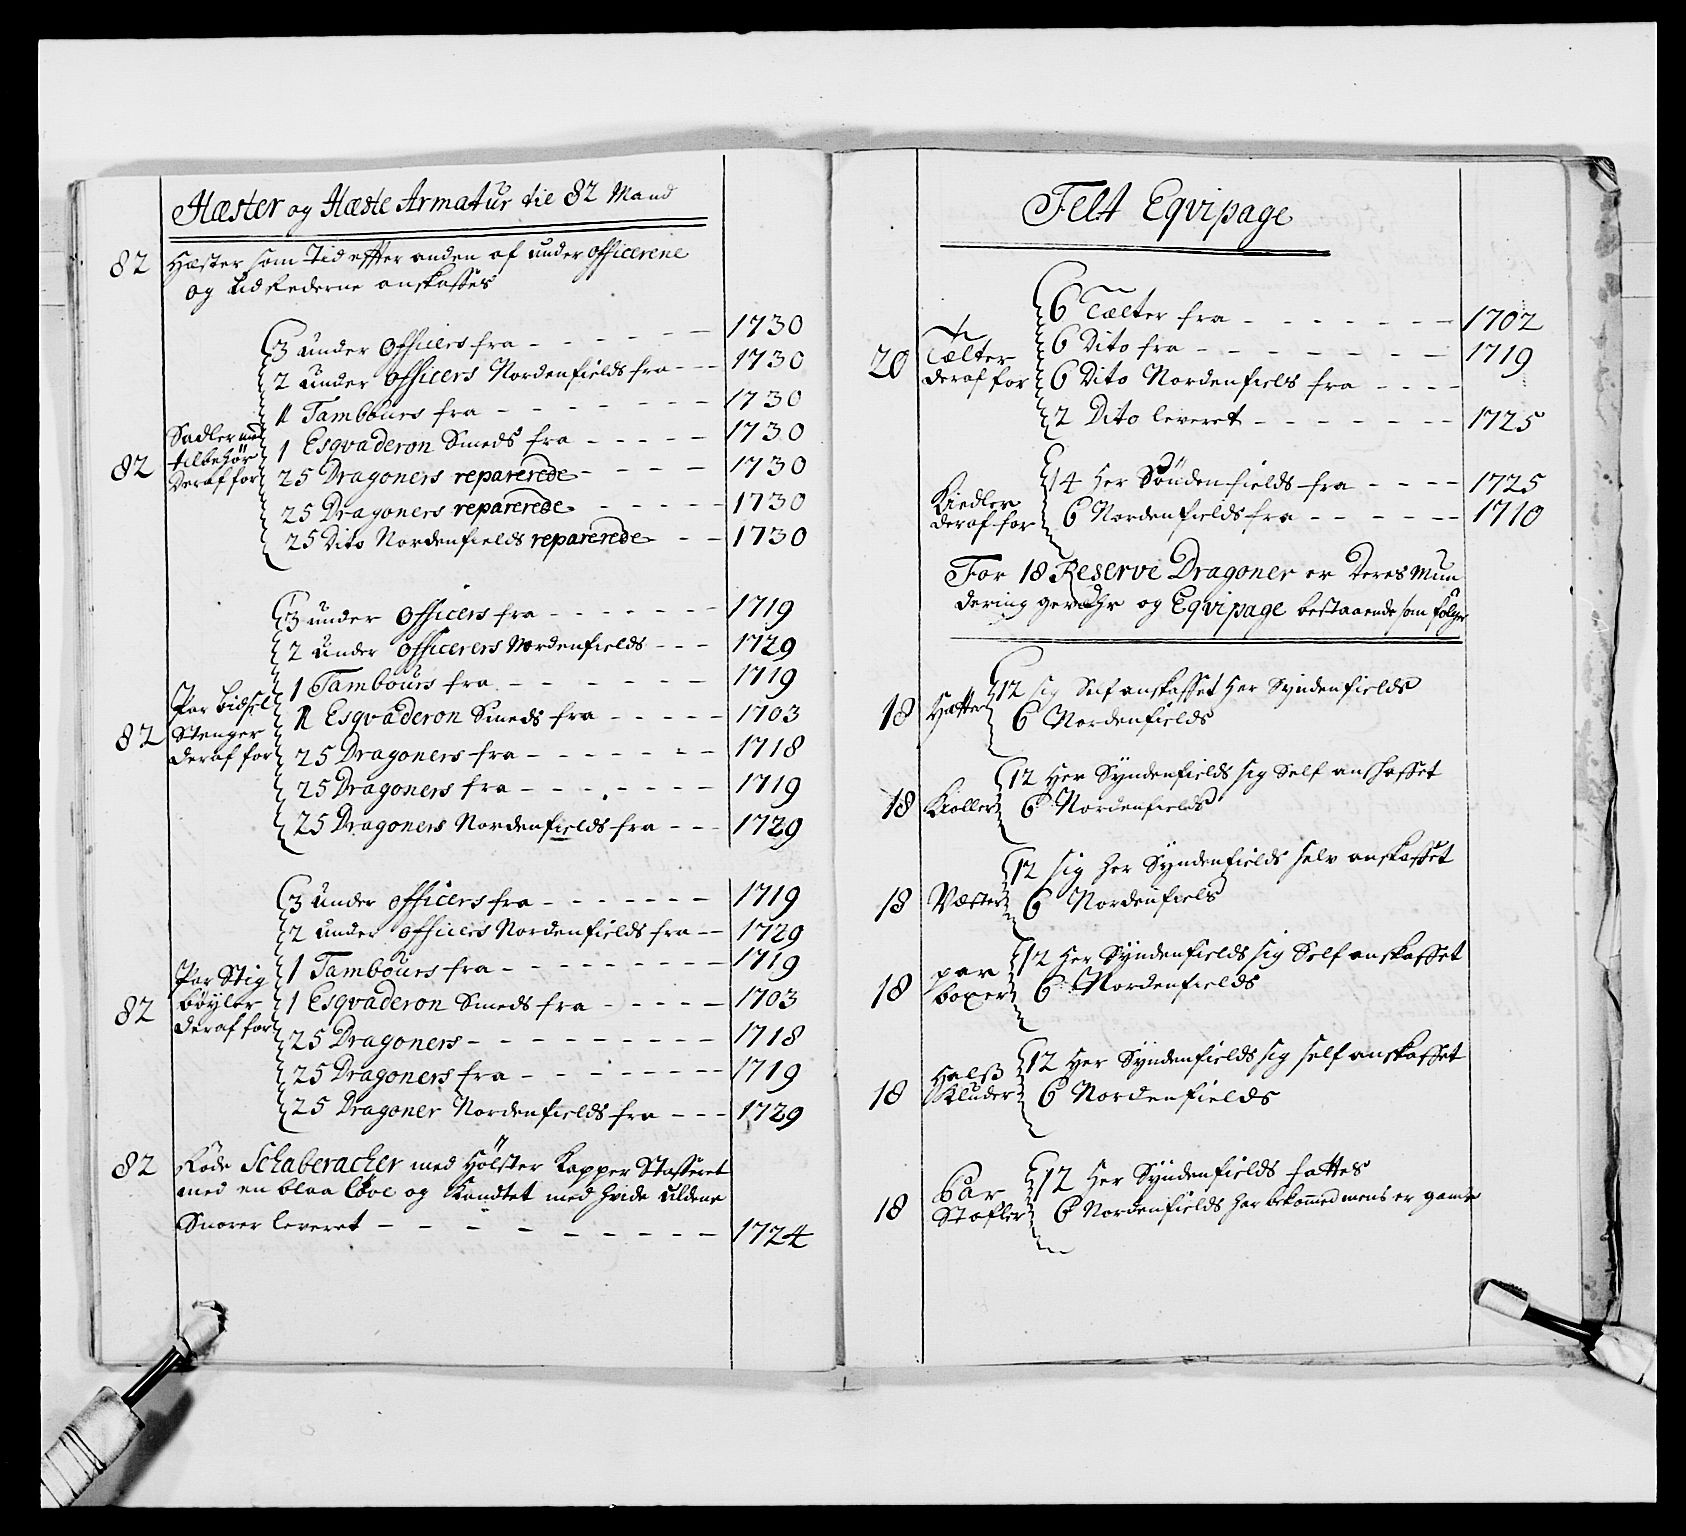 Hæster og Hæste Armatur til 82 Mand
82 Hæster som Tid efter anden af under Officerene
og Udrederne anskaffes
3 under Officers fra - - - - - 1730
2 under Officers Nordenfields fra - - - 1730
1 Tambours fra - - - - - - - 1730
1 Esqvaderon Smeds fra - - - - - 1730
82 Sadler med tilbehör Deraf for
25 Dragoners reparerede - - - - 1730
25 Dragoners reparerede - - - - - 1730
25 Dito Nordenfields reparerede - - 1730
3 under Officers fra - - - - - - - 1719
2 under Officerers Nordenfields - - - 1729
1 Tambours fra - - - - - - 1719
82 Par bidsel Stenger deraf for
1 Esqvaderon Smeds fra - - - - - 1703
25 Dragoners fra - - - - - - 1718
25 Dragoners fra - - - - - - - 1719
25 Dragoners Nordenfields fra - - - 1729
3 under officers fra - - - - - - - 1719
2 under officers Nordenfields fra - - 1729
82 Par Stig bøyler deraf for
1 Tambours fra - - - - - - - - - 1719
1 Esqvaderon Smeds fra - - - - - 1703
25 Dragoners - - - - - - - - - 1718
25 Dragoners fra - - - - - - - - 1719
25 Dragoner Nordenfields fra - - - 1729
82 Røde Schaberacher med Hölster Kapper Stafferet
med en blaa Love og Kandtet med hvide uldene
Snorer leveret - - - - - - - - - 1724
Felt Eqvipage
6 Tælter fra - - - - - - - 1702
20 Tælter deraf for
6 Dito fra - - - - - - - - 1719
6 Dito Nordenfiels fra - - - -
2 Dito leveret - - - - - - - 1725
Kiedler deraf for
14 Her Söndenfields fra - - - - 1725
6 Nordenfields fra - - - - - - 1710
For 18 Reserve Dragoner er Deres Mun
dering geværhr og Eqvipage bestaaende som fölger
18 Hatter
12 sig Self anskaffet her Syndenfields
6 Nordenfields
18 Kioller
12 Her Syndenfields sig Self anskaffet
6 Nordenfields
18 Vester
12 sig her Syndenfields selv anskaffet
6 Nordenfiels
18 par boxer
12 Her Syndenfields sig Self anskaffet
6 Nordenfields
18 Halss Kluder
12 Her Syndenfields sig self anskaffet
6 Nordenfields
18 Par Støfler
12 Her Syndenfields fattes
6 Nordenfields har bekommed mens er gamle